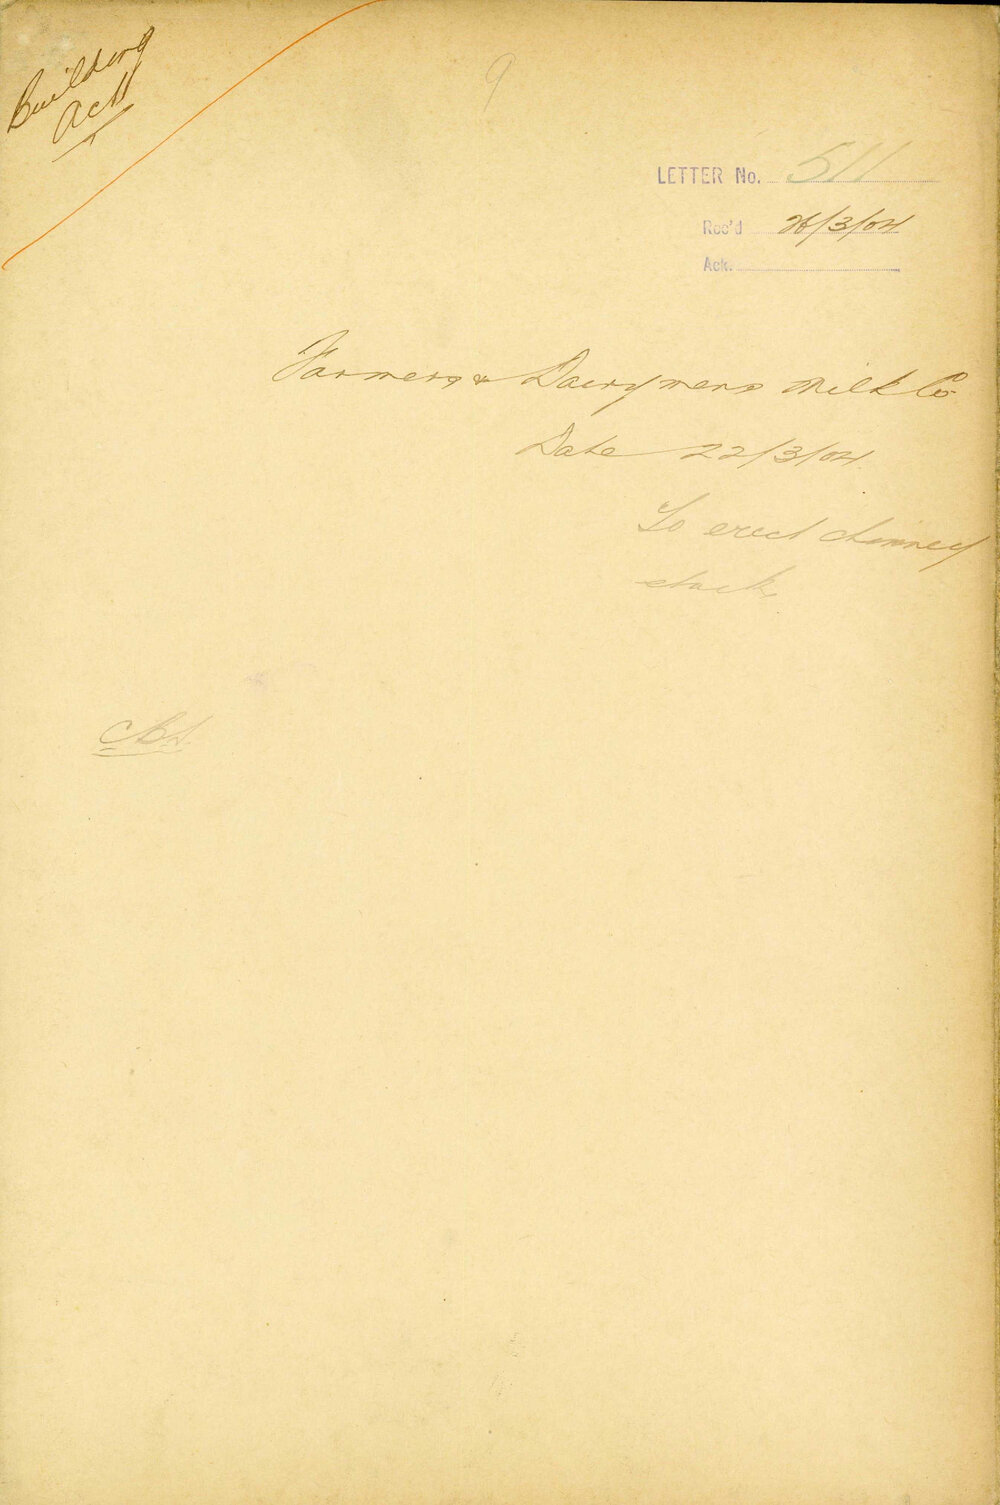 Building
Act
9
LETTER No. 511
Rec'd 26/3/04
Ack.
Farmers & Dairymens Milk Co
Date 22/3/04
To erect chimney
stack